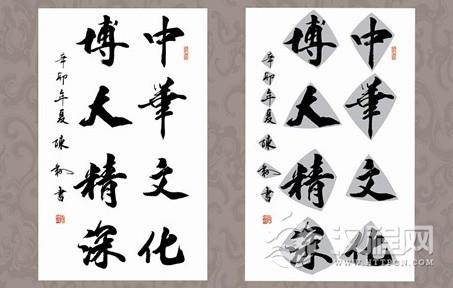 中華文化
博大精深
辛卯年夏陳
書
中華文化
博大精深
辛卯年夏陳
書
汉程网
WWW.HTTPCN.COM